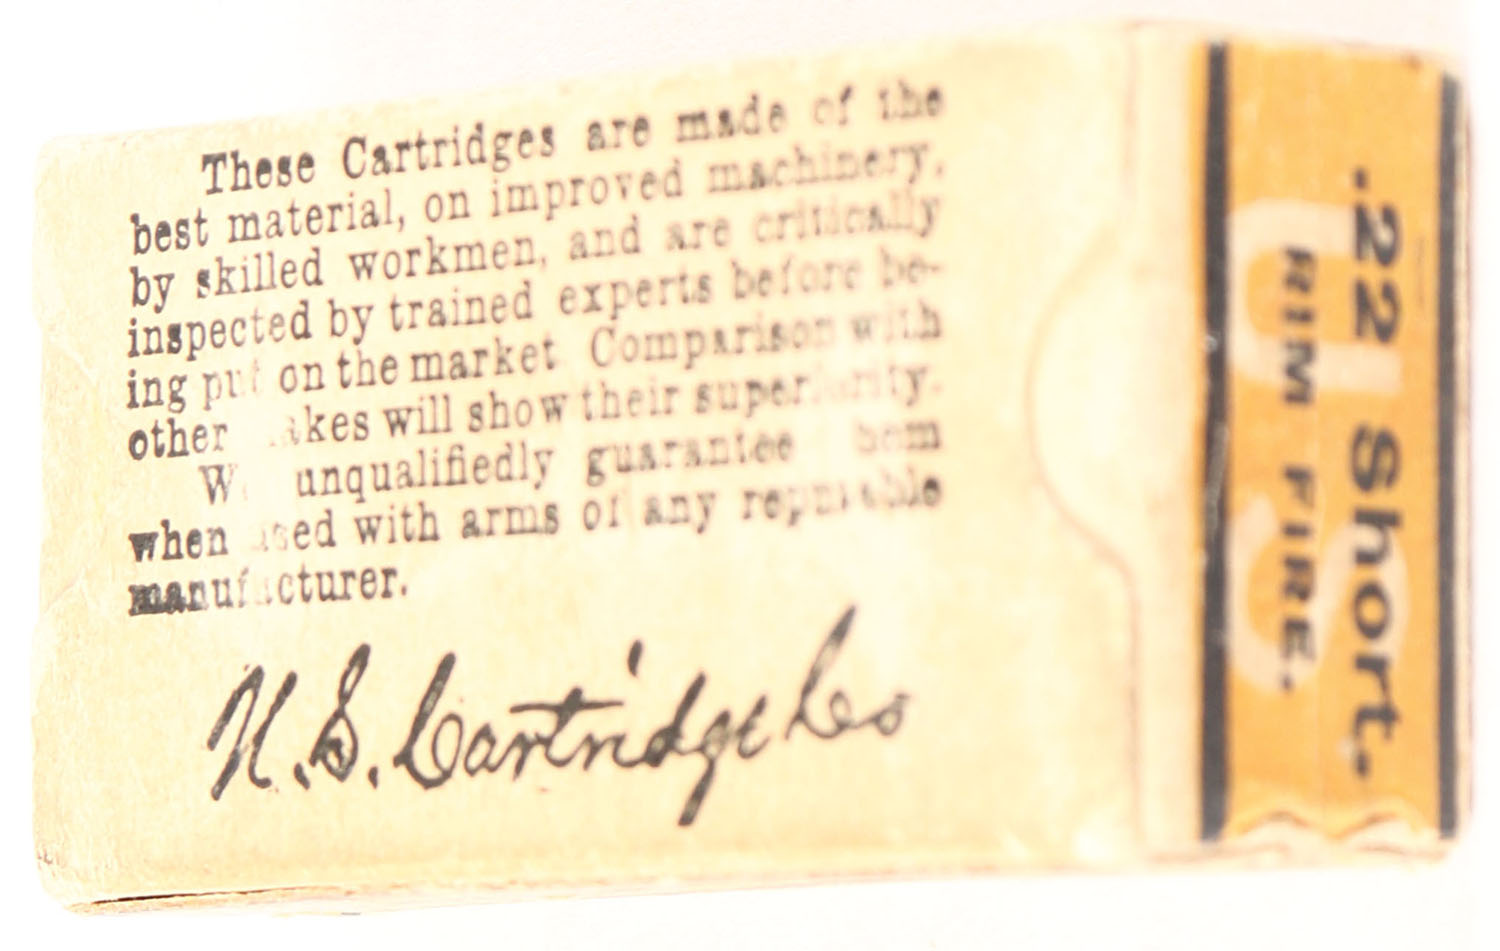 These Cartridges are made of the
best material, on improved machinery,
by skilled workmen, and are critically
inspected by trained experts before be-
ing put on the market. Comparison with
other makes will show their superiority.
We unqualifiedly guarantee them
when used with arms of any reputable
manufacturer.
U.S. Cartridge Co
.22 Short.
RIM FIRE.
US